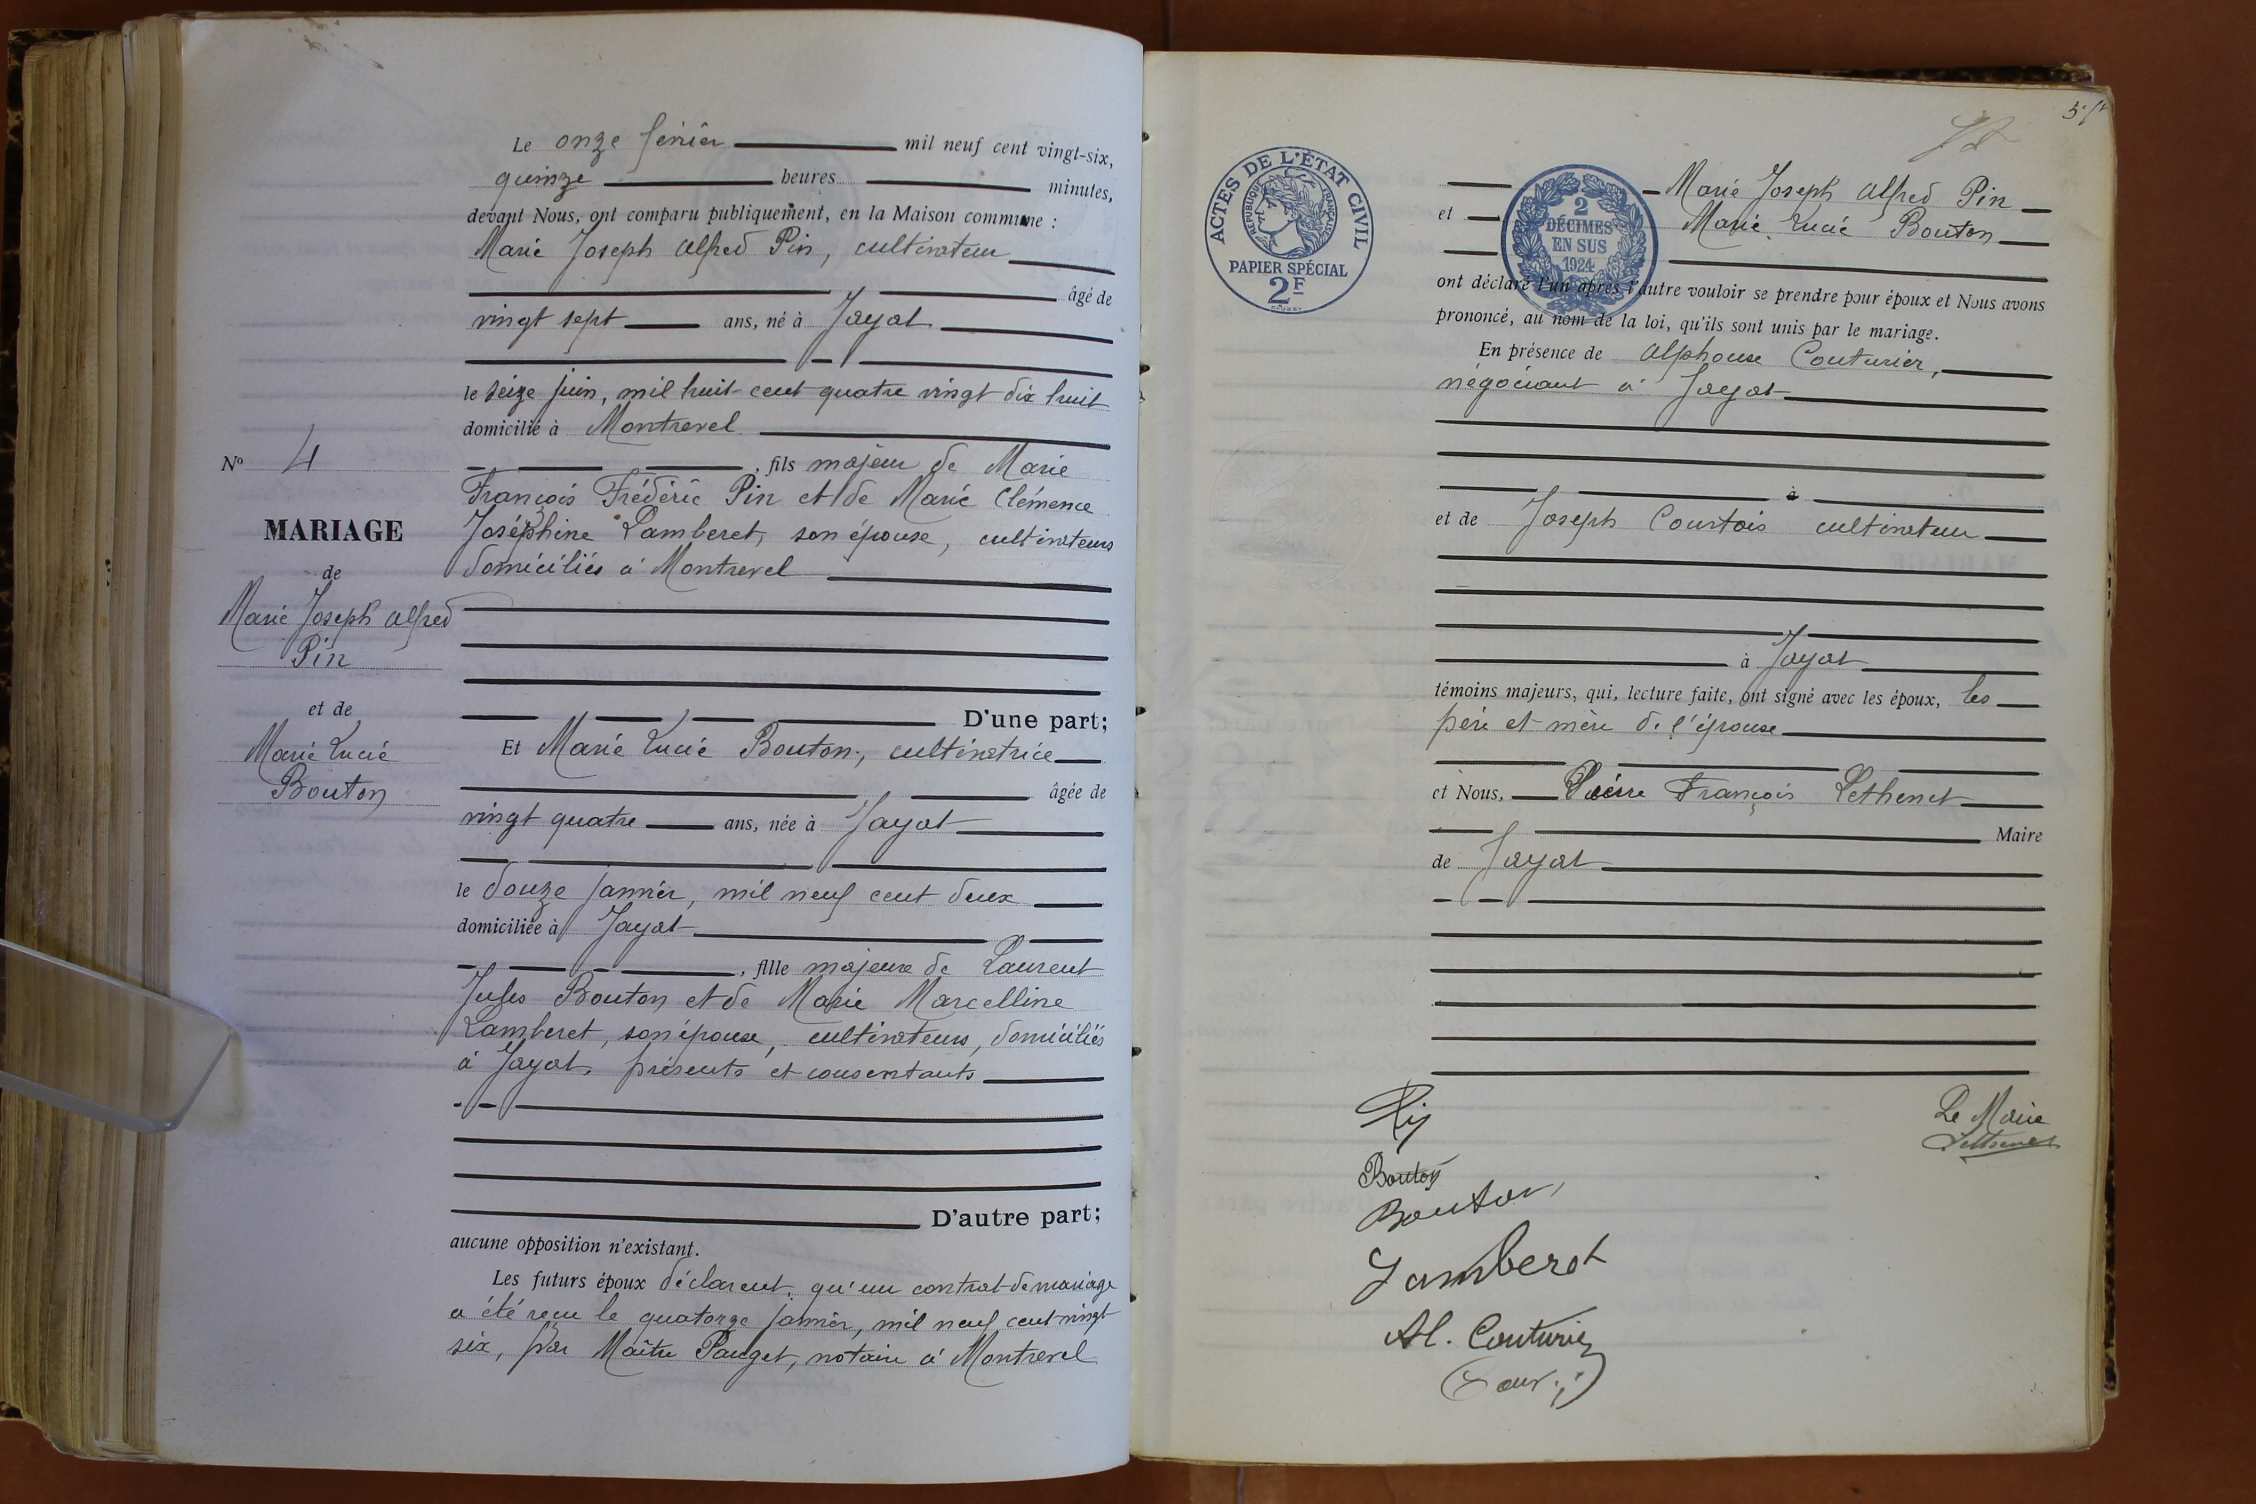 Le onze février mil neuf cent vingt-six,
quinze heures minutes,
devant Nous, ont comparu publiquement, en la Maison commune :
Marie Joseph Alfred Pin, cultivateur
âgé de
vingt sept ans, né à Jayat
le seize juin, mil huit cent quatre vingt dix huit
domicilié à Montrevel
, fils majeur de Marie
François Frédéric Pin et de Marie Clémence
Joséphine Lamberet, son épouse, cultivateurs
domiciliés à Montrevel
D'une part;
Et Marie Lucie Bouton, cultivatrice
âgée de
vingt quatre ans, née à Jayat
le douze janvier, mil neuf cent deux
domiciliée à Jayat
, fille majeure de Laurent
Jules Bouton et de Marie Marcelline
Lamberet, son épouse, cultivateurs, domiciliés
à Jayat, présents et consentants
D'autre part;
aucune opposition n'existant.
Les futurs époux déclarent, qu'un contrat de mariage
a été reçu le quatorze janvier, mil neuf cent vingt
six, par Maître Pauget, notaire à Montrevel
No 4
MARIAGE
de
Marie Joseph Alfred
Pin
et de
Marie Lucie
Bouton
ACTES DE L'ÉTAT CIVIL
RÉPUBLIQUE FRANÇAISE
PAPIER SPÉCIAL
2F
2
DÉCIMES
EN SUS
1924
Marie Joseph Alfred Pin
et Marie Lucie Bouton
ont déclaré l'un après l'autre vouloir se prendre pour époux et Nous avons
prononcé, au nom de la loi, qu'ils sont unis par le mariage.
En présence de Alphonse Couturier,
négociant à Jayat
à
et de Joseph Courtois cultivateur
à Jayat
témoins majeurs, qui, lecture faite, ont signé avec les époux, les
père et mère de l'épouse
et Nous, Pierre François Pethenet
Maire
de Jayat
Pin
Bouton
Bouton
Lamberet
Al. Couturier
Le Maire